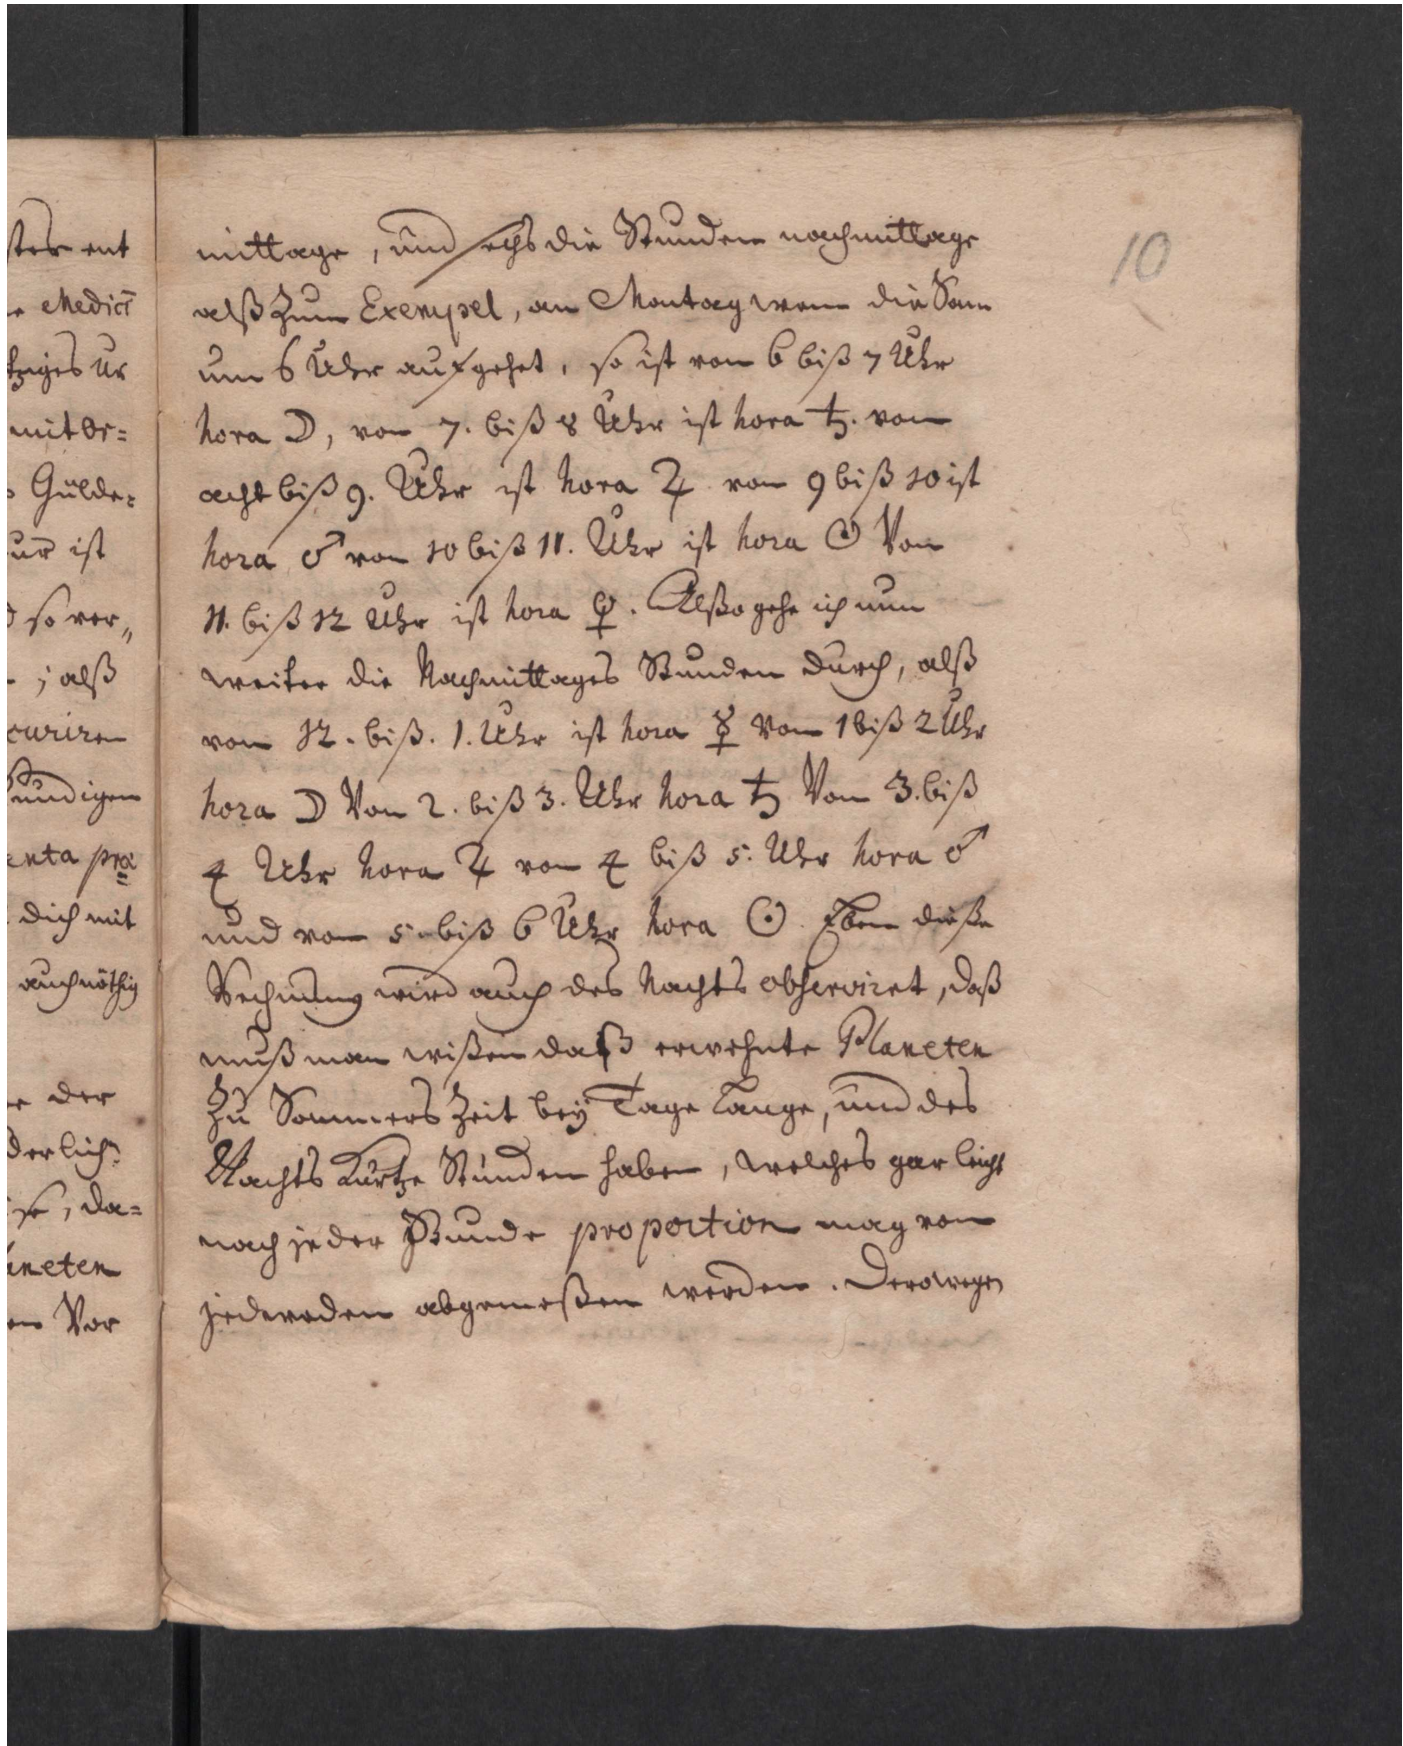 10
mittage, und sechs die Stunden nachmittage
alß zum Exempel, am Montag wenn die Sonn
um 6 Uhr aufgehet, so ist von 6 biß 7 Uhr
hora ☽, von 7. biß 8 Uhr ist hora ♄. von
acht biß 9. Uhr ist hora ♃ von 9 biß 10 ist
hora ♂ von 10 biß 11. Uhr ist hora ☉ Von
11. biß 12 Uhr ist hora ♀. Alßo gehe ich nun
weiter die Nachmittages Stunden durch, alß
von 12. biß. 1. Uhr ist hora ☿ Von 1 biß 2 Uhr
hora ☽ Von 2. biß 3. Uhr hora ♄ Von 3. biß
4 Uhr hora ♃ von 4 biß 5. Uhr hora ♂
und von 5. biß 6 Uhr hora ☉. Eben dieße
Rechnung wird auch des Nachts observiret, daß
muß man wißen daß erwehnte Planeten
zu Sommers Zeit bey Tage lange, und des
Nachts kurtze Stunden haben, welches gar leicht
nach jeder Stunde proportion mag von
jedweden abgemeßen werden. Derowegen
ster ent
Medici
tziges Ur
mit Or=
Gülde=
ur ist
so ver„
; alß
curiren
Sündigen
enta præ
dich mit
auch nöthig
der
derlich
se, da=
aneten
en Vor